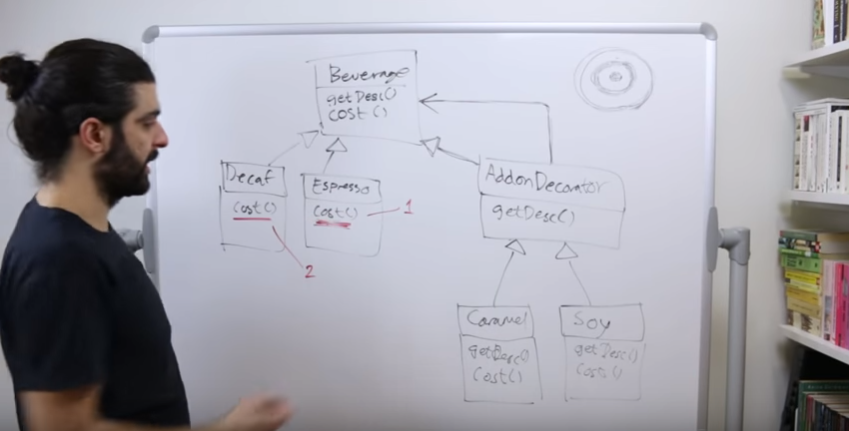 Beverage
getDesc()
cost()
Decaf
cost()
2
Espresso
cost()
1
AddonDecorator
getDesc()
Caramel
getDesc()
cost()
Soy
getDesc()
cost()